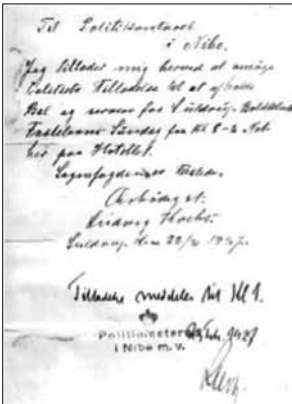 Til Politikontoret
i Nibe.
Jeg tillader mig herved at ansøge
Politiets Tilladelse til at afholde
Bal og servere for Suldrup Boldklub
Fastelavns Søndag fra Kl 8-2 Nat
her paa Hotellet.
Sognefogden er
Ærbødigst
Ludvig
Suldrup, den 22/2 1927.
Tilladelse meddeles til Kl 1.
Politimesteren
i Nibe m. v.